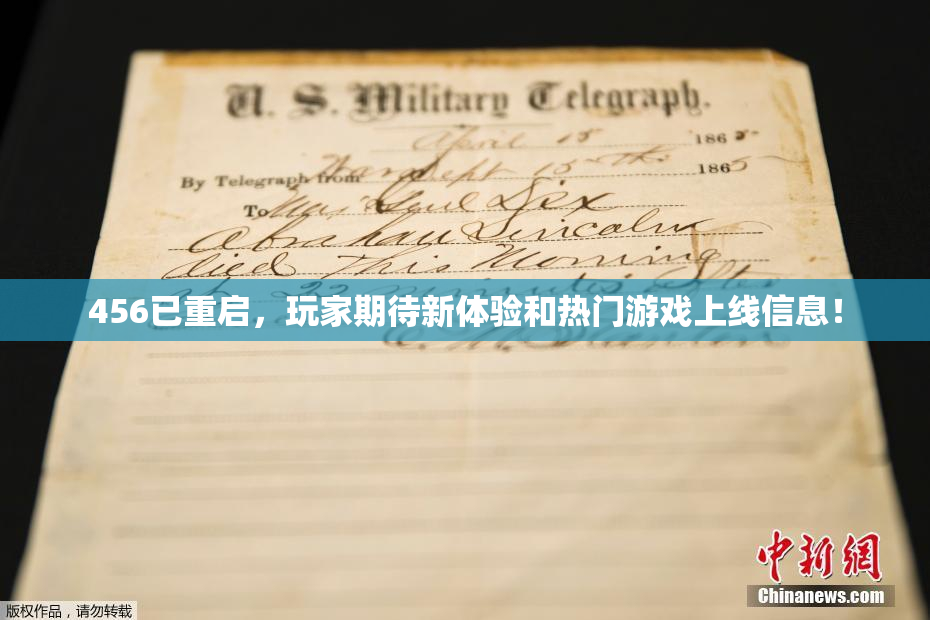 U. S. Military Telegraph.
April 15 1865
By Telegraph from War Dept 15th 1865
To Maj Genl Dix
Abraham Lincoln
died This Morning
at 22 minutes after
456已重启，玩家期待新体验和热门游戏上线信息！
E. M. Stanton
中新網
Chinanews.com
版权作品，请勿转载